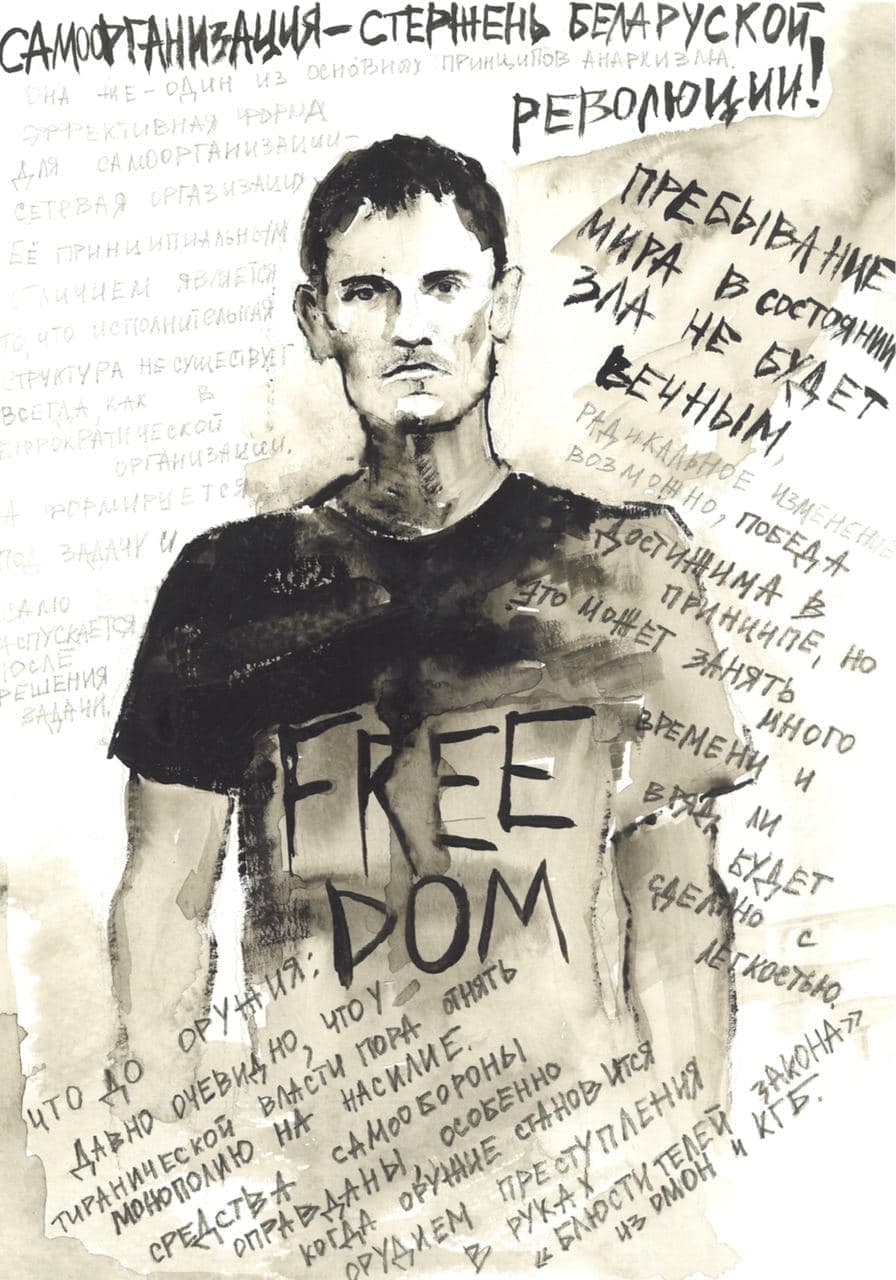 САМООРГАНИЗАЦИЯ – СТЕРЖЕНЬ БЕЛАРУСКОЙ
РЕВОЛЮЦИИ!
ОНА ЖЕ – ОДИН ИЗ ОСНОВНЫХ ПРИНЦИПОВ АНАРХИЗМА.
ЭФФЕКТИВНАЯ ФОРМА
ДЛЯ САМООРГАНИЗАЦИИ –
СЕТЕВАЯ ОРГАЗИЗАЦИЯ
ЕЁ ПРИНЦИПИАЛЬНЫМ
ОТЛИЧИЕМ ЯВЛЯЕТСЯ
ТО, ЧТО ИСПОЛНИТЕЛЬНАЯ
СТРУКТУРА НЕ СУЩЕСТВУЕТ
ВСЕГДА, КАК В
БЮРОКРАТИЧЕСКОЙ
ОРГАНИЗАЦИИ,
А ФОРМИРУЕТСЯ
ПОД ЗАДАЧУ И
САМО
РАСПУСКАЕТСЯ
ПОСЛЕ
РЕШЕНИЯ
ЗАДАЧИ.
ПРЕБЫВАНИЕ
МИРА В СОСТОЯНИИ
ЗЛА НЕ БУДЕТ
ВЕЧНЫМ,
РАДИКАЛЬНОЕ ИЗМЕНЕНИЕ
ВОЗМОЖНО, ПОБЕДА
ДОСТИЖИМА В
ПРИНЦИПЕ, НО
ЭТО МОЖЕТ ЗАНЯТЬ
МНОГО
ВРЕМЕНИ И
ВРЯД ЛИ
БУДЕТ
СДЕЛАНО С
ЛЁГКОСТЬЮ.
FREE
DOM
ЧТО ДО ОРУЖИЯ:
ДАВНО ОЧЕВИДНО, ЧТО У
ТИРАНИЧЕСКОЙ ВЛАСТИ ПОРА ОТНЯТЬ
МОНОПОЛИЮ НА НАСИЛИЕ.
СРЕДСТВА САМООБОРОНЫ
ОПРАВДАНЫ, ОСОБЕННО
КОГДА ОРУЖИЕ СТАНОВИТСЯ
ОРУДИЕМ ПРЕСТУПЛЕНИЯ
В РУКАХ
«БЛЮСТИТЕЛЕЙ ЗАКОНА»
ИЗ ОМОН И КГБ.